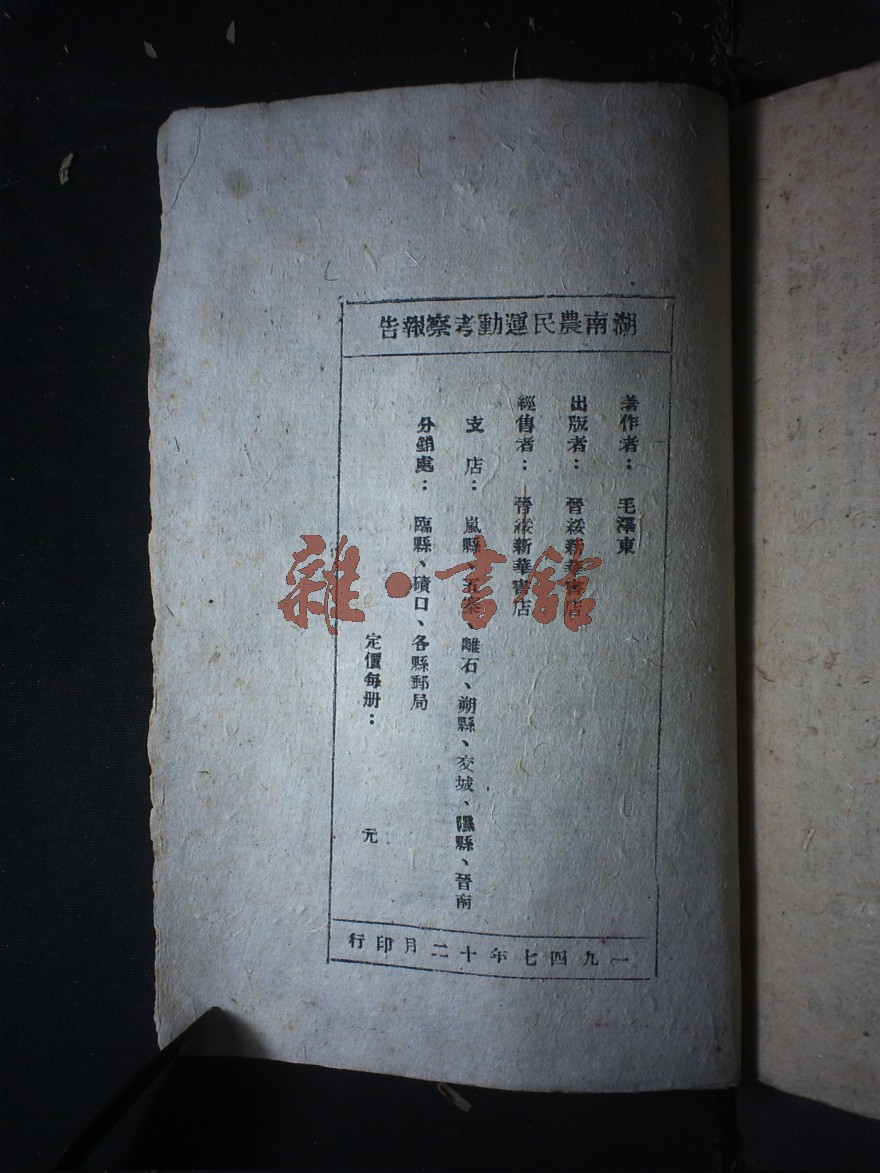 湖南農民運動考察報告
著作者：毛澤東
出版者：晉綏新華書店
經售者：晉綏新華書店
支店：嵐縣、五寨、離石、朔縣、交城、隰縣、晉南
分銷處：臨縣、磧口、各縣郵局
定價每册：元
一九四七年十二月印行
雜·書館